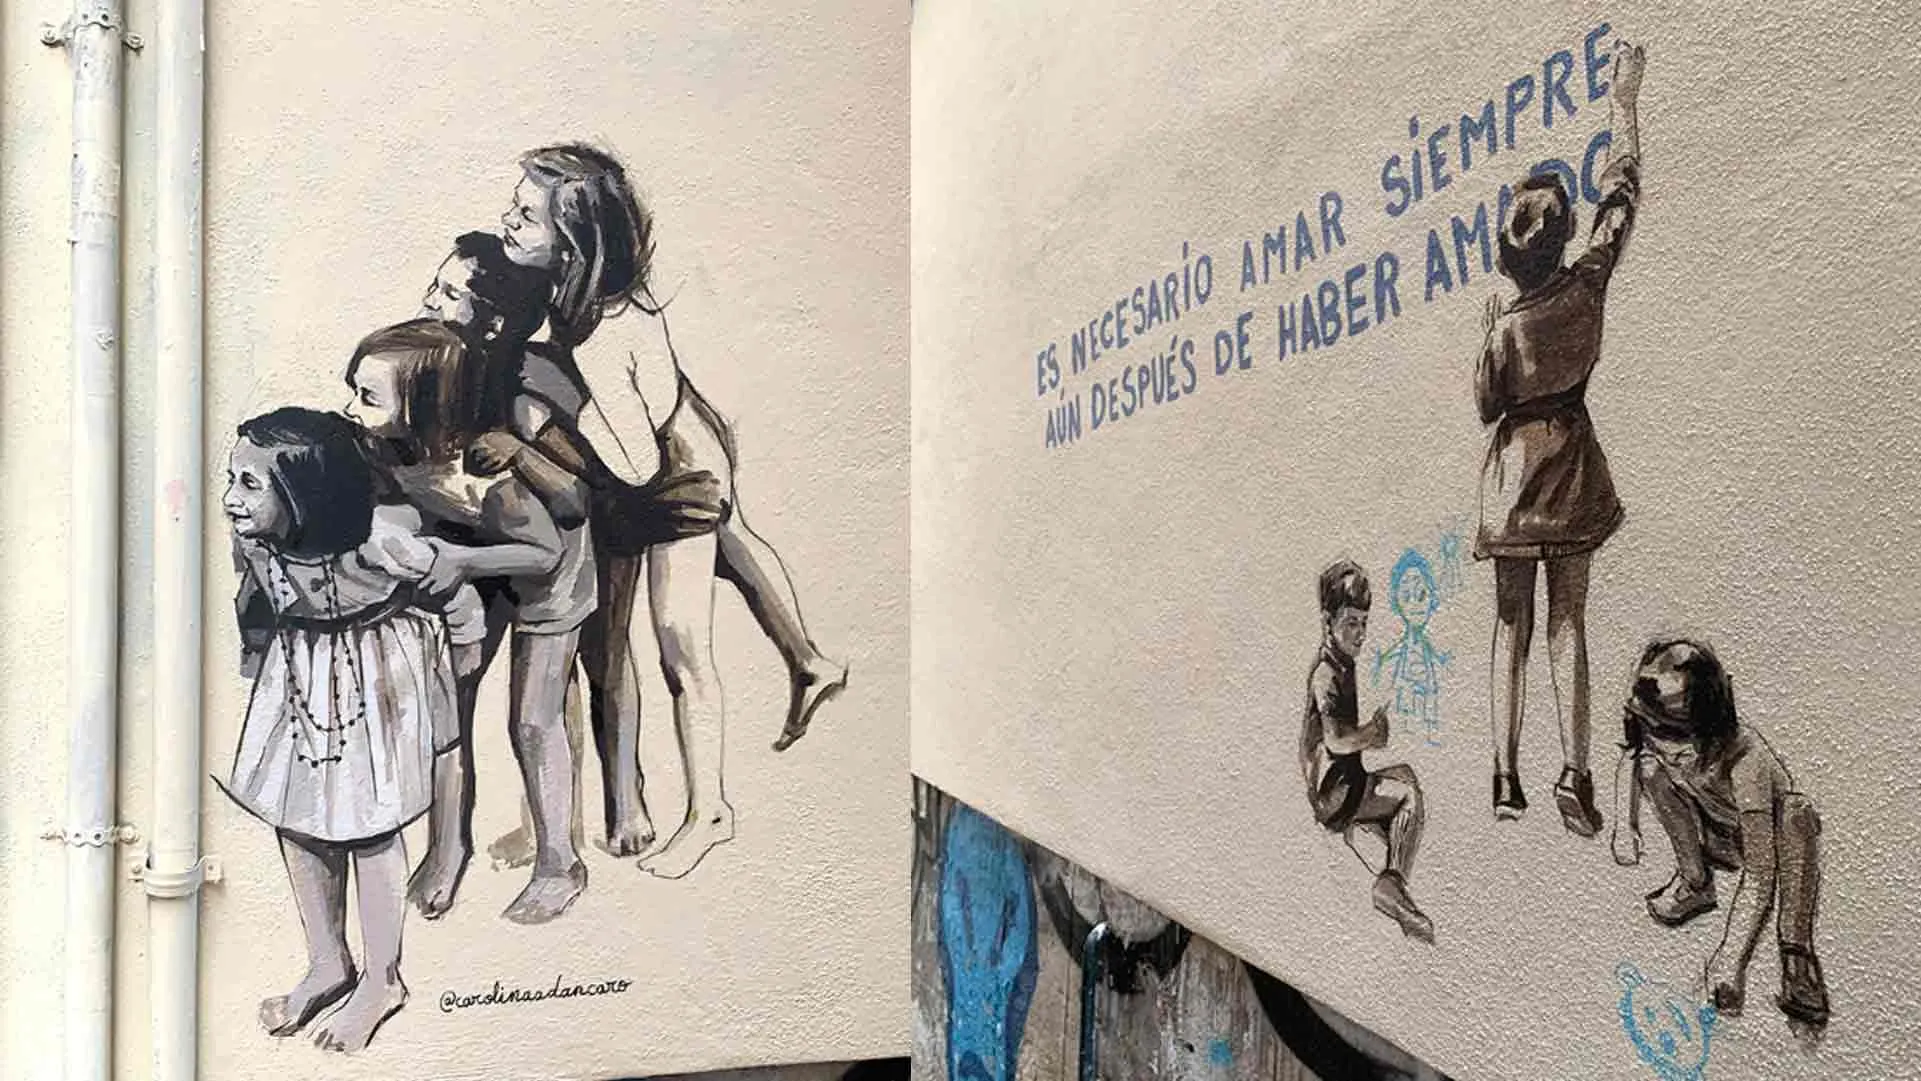 @carolinaadancaro
ES NECESARIO AMAR SIEMPRE
AÚN DESPUÉS DE HABER AMADO